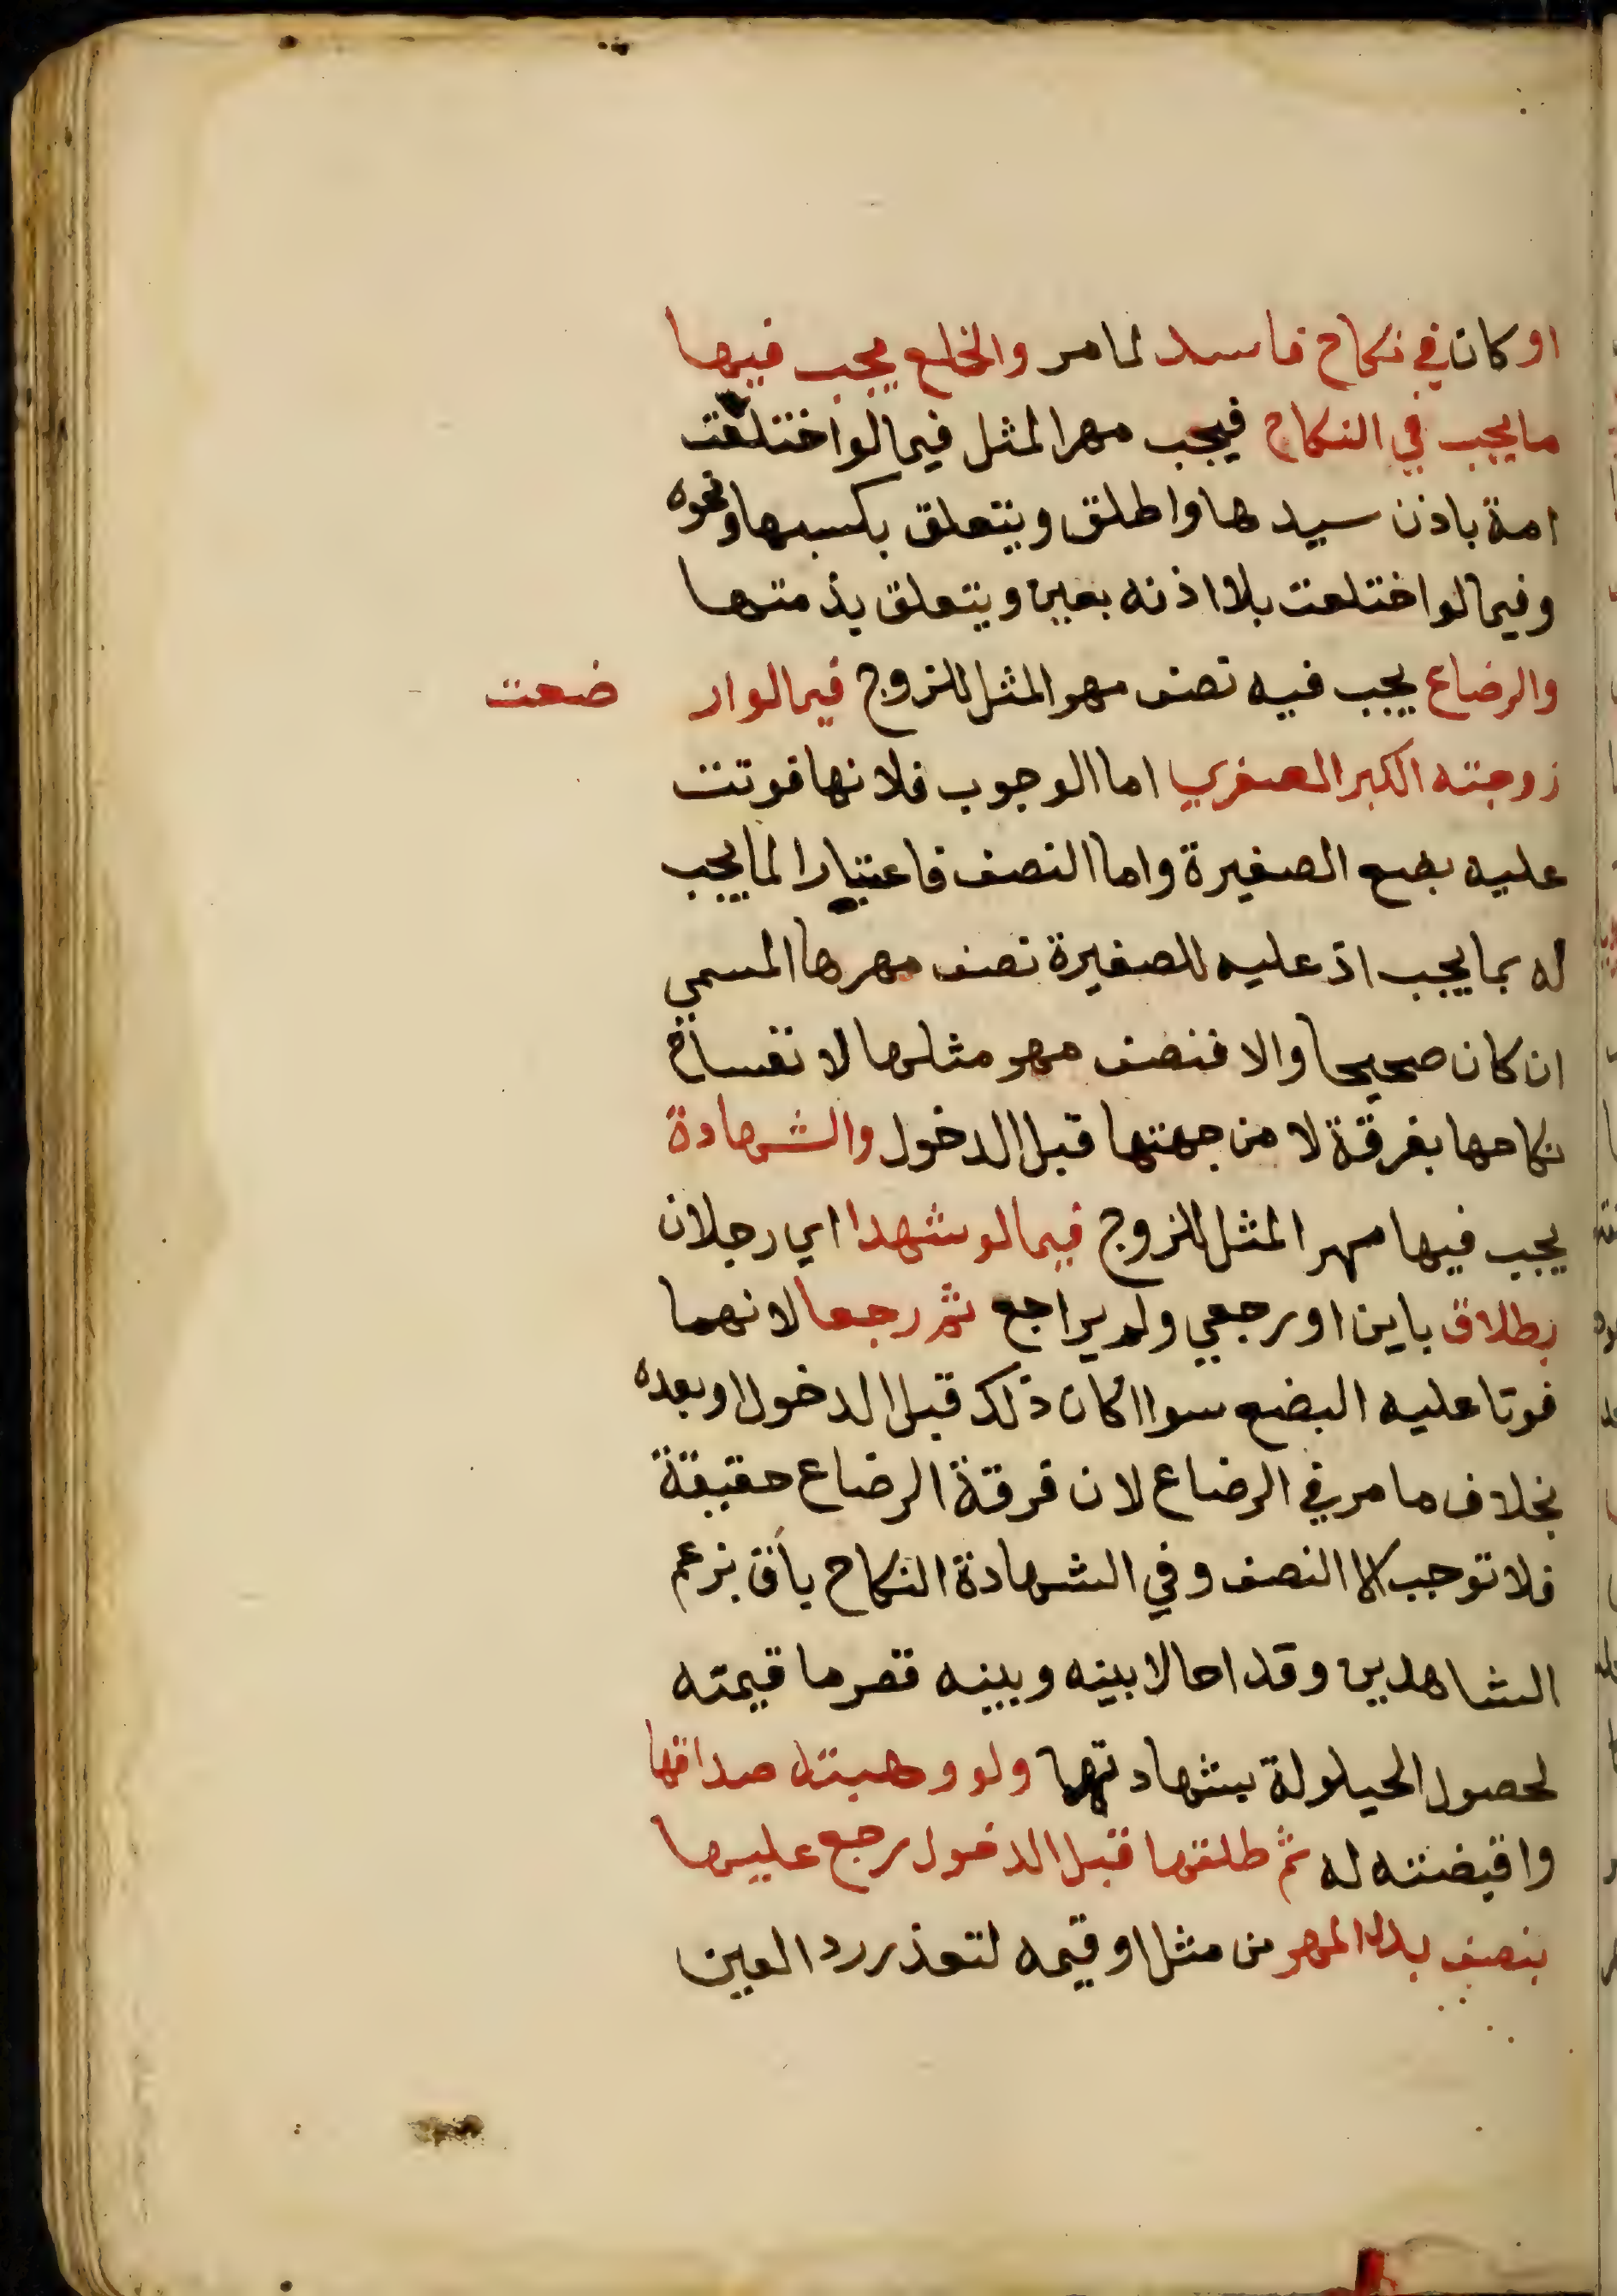 او كان في نكاح فاسد لما مر والخلع يجب فيها
ما يجب في النكاح فيجب مهر المثل فيما لو اختلعت
امة باذن سيدها واطلق ويتعلق بكسبها ونحوه
وفيما لو اختلعت بلا اذنه بعين ويتعلق بذمتها
والرضاع يجب فيه نصف مهر المثل للزوج فيما لو ار ضعت
زوجته الكبر الصغري اما الوجوب فلانها فوتت
عليه بضع الصغيرة واما النصف فاعتبارا لما يجب
له بما يجب اذ عليه للصغيرة نصف مهرها المسمي
ان كان صحيحا والا فنصف مهر مثلها لانفساخ
نكاحها بفرقة لا من جهتها قبل الدخول والشهادة
يجب فيها مهر المثل للزوج فيما لو شهدا اي رجلان
بطلاق باين او رجعي ولم يراجع ثم رجعا لانهما
فوتا عليه البضع سوا اكان ذلك قبل الدخول او بعده
بخلاف ما مر في الرضاع لان فرقة الرضاع حقيقة
فلا توجب الا النصف وفي الشهادة النكاح باق بزعم
الشاهدين وقد احالا بينه وبينه فغرما قيمته
لحصول الحيلولة بشهادتهما ولو وهبته صداقها
واقبضته له ثم طلقها قبل الدخول رجع عليها
بنصف بدل المهر من مثل او قيمه لتعذر رد العين